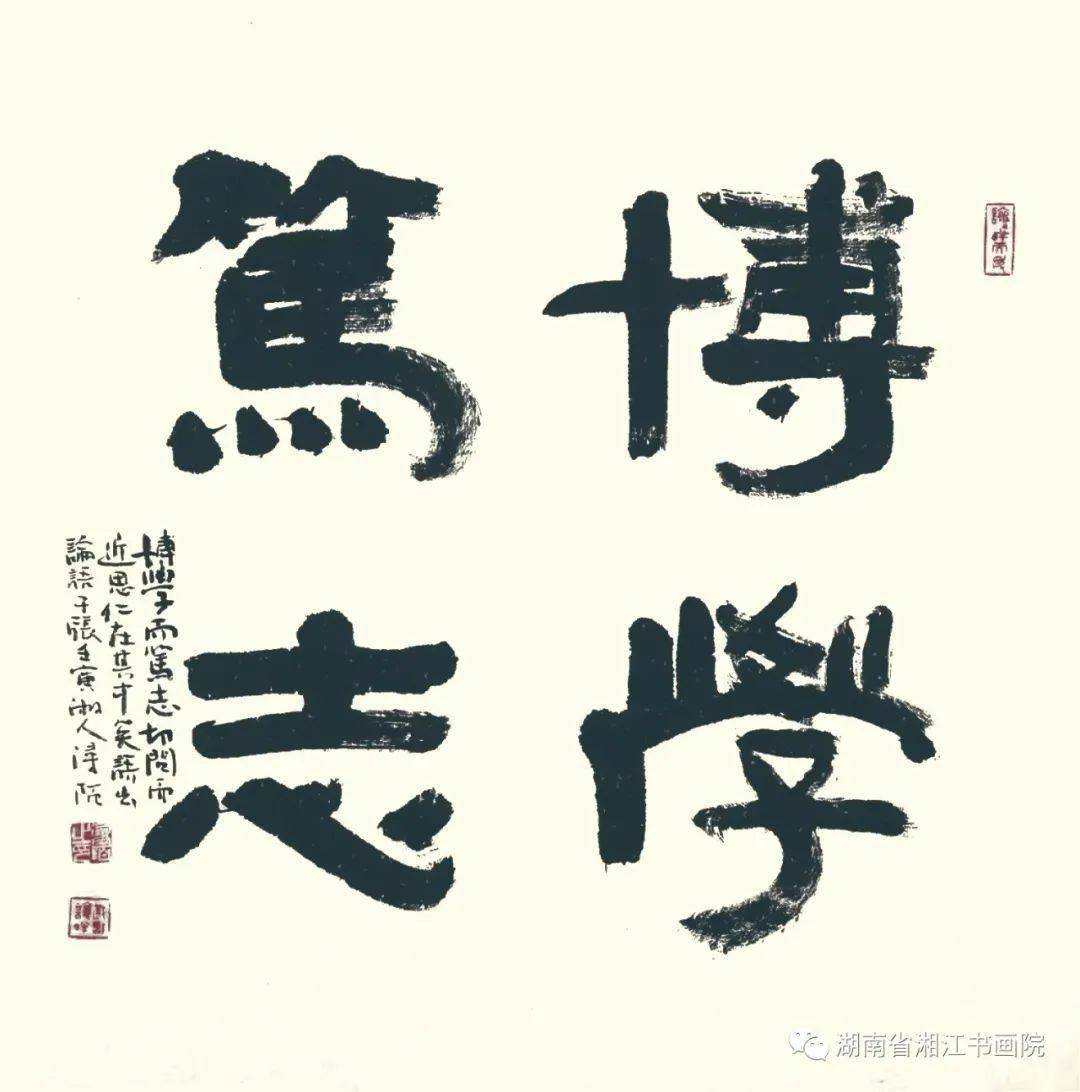 博學
篤志
博學而篤志切問而
近思仁在其中矣語出
論語子張壬寅湘人
湖南省湘江书画院